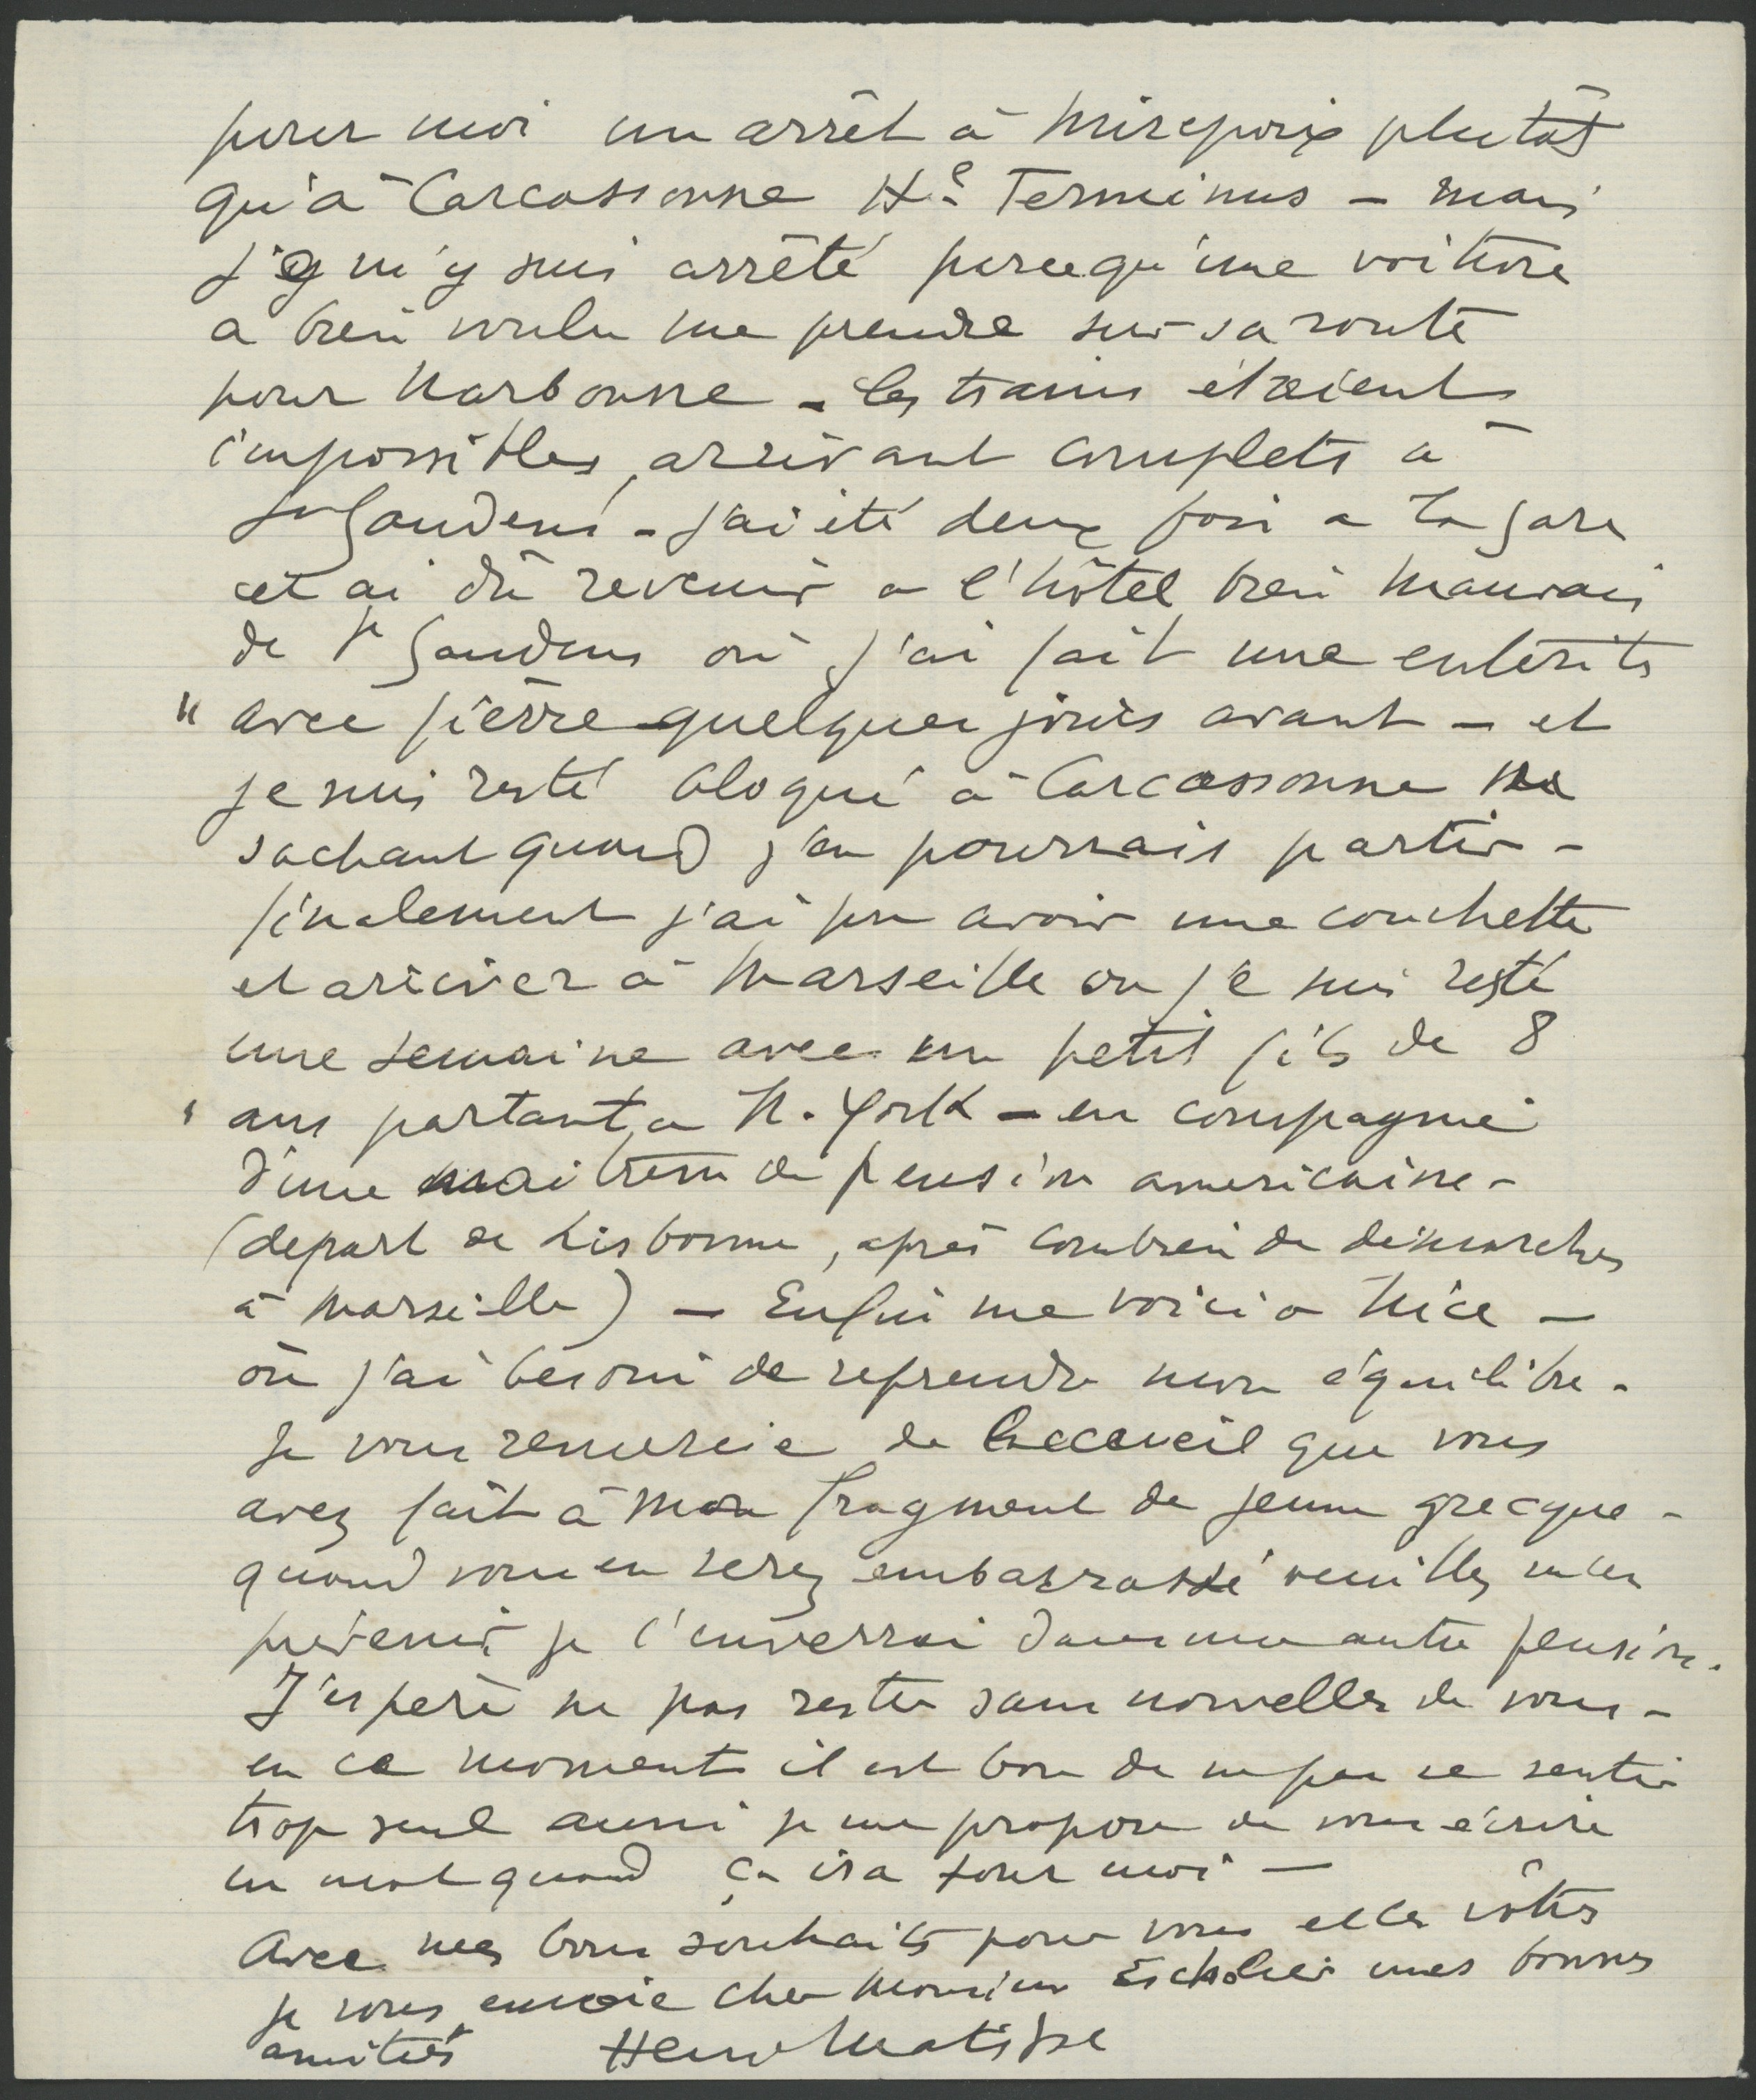 pour moi un arrêt à Mirepoix plutôt
qu'à Carcassonne Hᵉˡ Terminus – mais
je m'y suis arrêté parcequ'une voiture
a bien voulu me prendre sur sa route
pour Narbonne – les trains étaient
impossibles, arrivant complets à
St Gaudens – j'ai été deux fois a la gare
et ai dû revenir a l'hôtel bien mauvais
de St Gaudens où j'ai fait une enterite
" avec fièvre quelques jours avant – et
je suis resté bloqué à Carcassonne ne
sachant quand j'en pourrais partir –
finalement j'ai pu avoir une couchette
et arriver à Marseille ou je suis resté
une semaine avec un petit fils de 8
' ans partant a N. York – en compagnie
d'une maitresse de pension americaine –
(depart de Lisbonne, après combien de démarches
à Marseille) – Enfin me voici a Nice –
où j'ai besoin de reprendre mon équilibre –
Je vous remercie de l'accueil que vous
avez fait à mon fragment de jeune grecque –
quand vous en serez embarrassé veuillez m'en
prévenir je l'enverrai dans une autre pension.
J'espère ne pas rester sans nouvelles de vous –
en ce moment il est bon de ne pas se sentir
trop seul aussi je me propose de vous écrire
un mot quand ça ira pour moi —
Avec mes bons souhaits pour vous et les vôtres
je vous envoie cher Monsieur Escholier mes bonnes
amitiés Henri Matisse